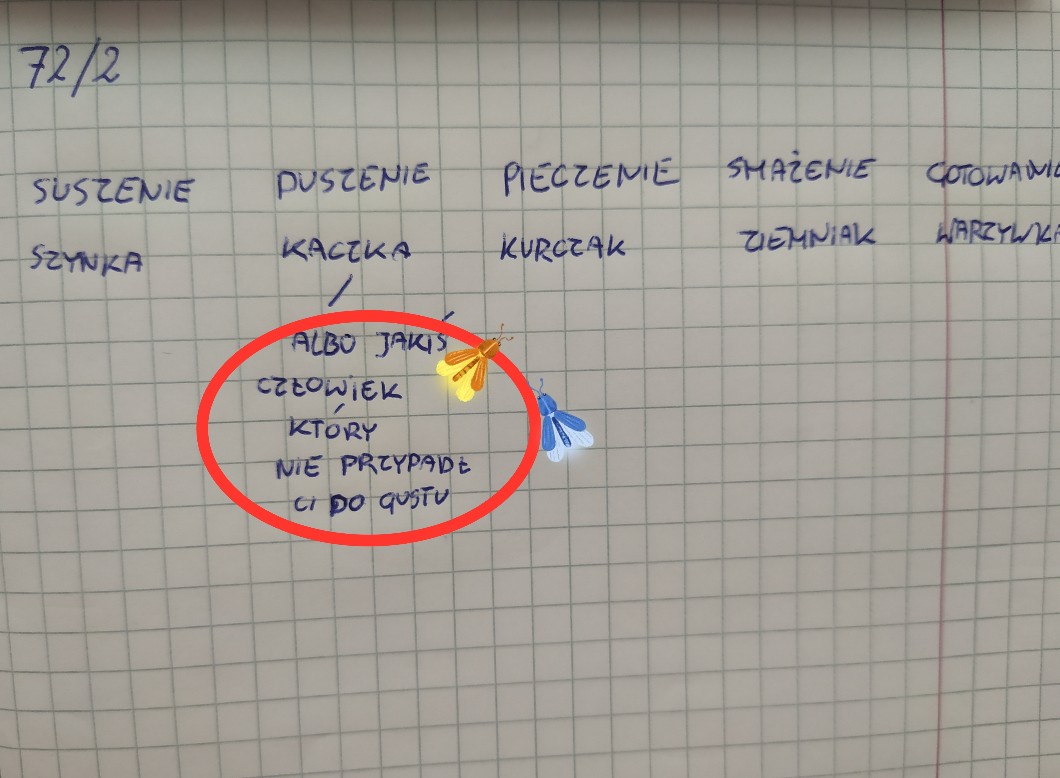 72/2
SUSZENIE DUSZENIE PIECZENIE SMAŻENIE GOTOWANIE
SZYNKA KACZKA KURCZAK ZIEMNIAK WARZYWKA
/
ALBO JAKIŚ
CZŁOWIEK
KTÓRY
NIE PRZYPADŁ
CI DO GUSTU